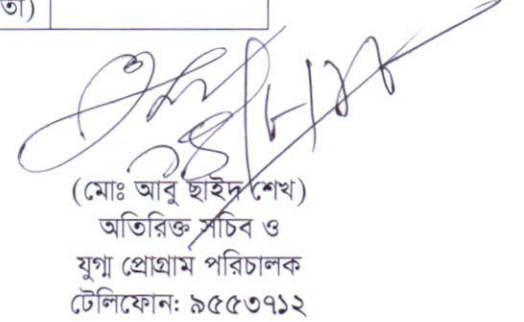 তা)
(মোঃ আবু ছাইদ শেখ)
অতিরিক্ত সচিব ও
যুগ্ম প্রোগ্রাম পরিচালক
টেলিফোন: ৯৫৫৩৭১২